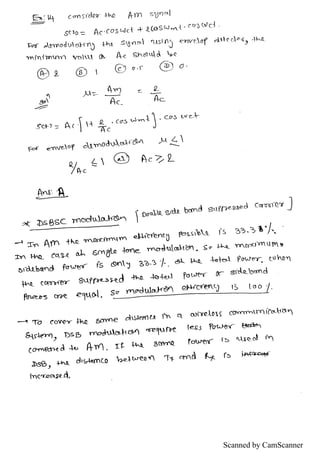 Ex: 4 consider the Am synal
S(t) = Ac.cosωct + 2cosωmt.cosωct.
For demodulating the synal using envelop detector, the
minimum value of Ac should be
(A) 2 (B) 1 (C) 0.5 (D) 0.
Sol μ = Am/Ac. = 2/Ac
S(t) = Ac [1 + 2/Ac .cosωmt] .cosωct
For envelop demodulation μ ≤ 1
2/Ac ≤ 1 (or) Ac ≥ 2
Ans: A
* DSBSC modulation [Double side band suppressed carrier]
→ In Am the maximum efficiency possible is 33.3%.
In the case of single tone modulation. So the maximum
sideband power is only 33.3%. of the total Power. when
the carrier suppressed the total power & sideband
powers are equal. so modulation efficiency is 100%.
→ To cover the same distance in a wireless communication
system, DSB modulation require less power
compared to Am. If the same power is used in
DSB, the distance between Tx and Rx is
increased.
Scanned by CamScanner